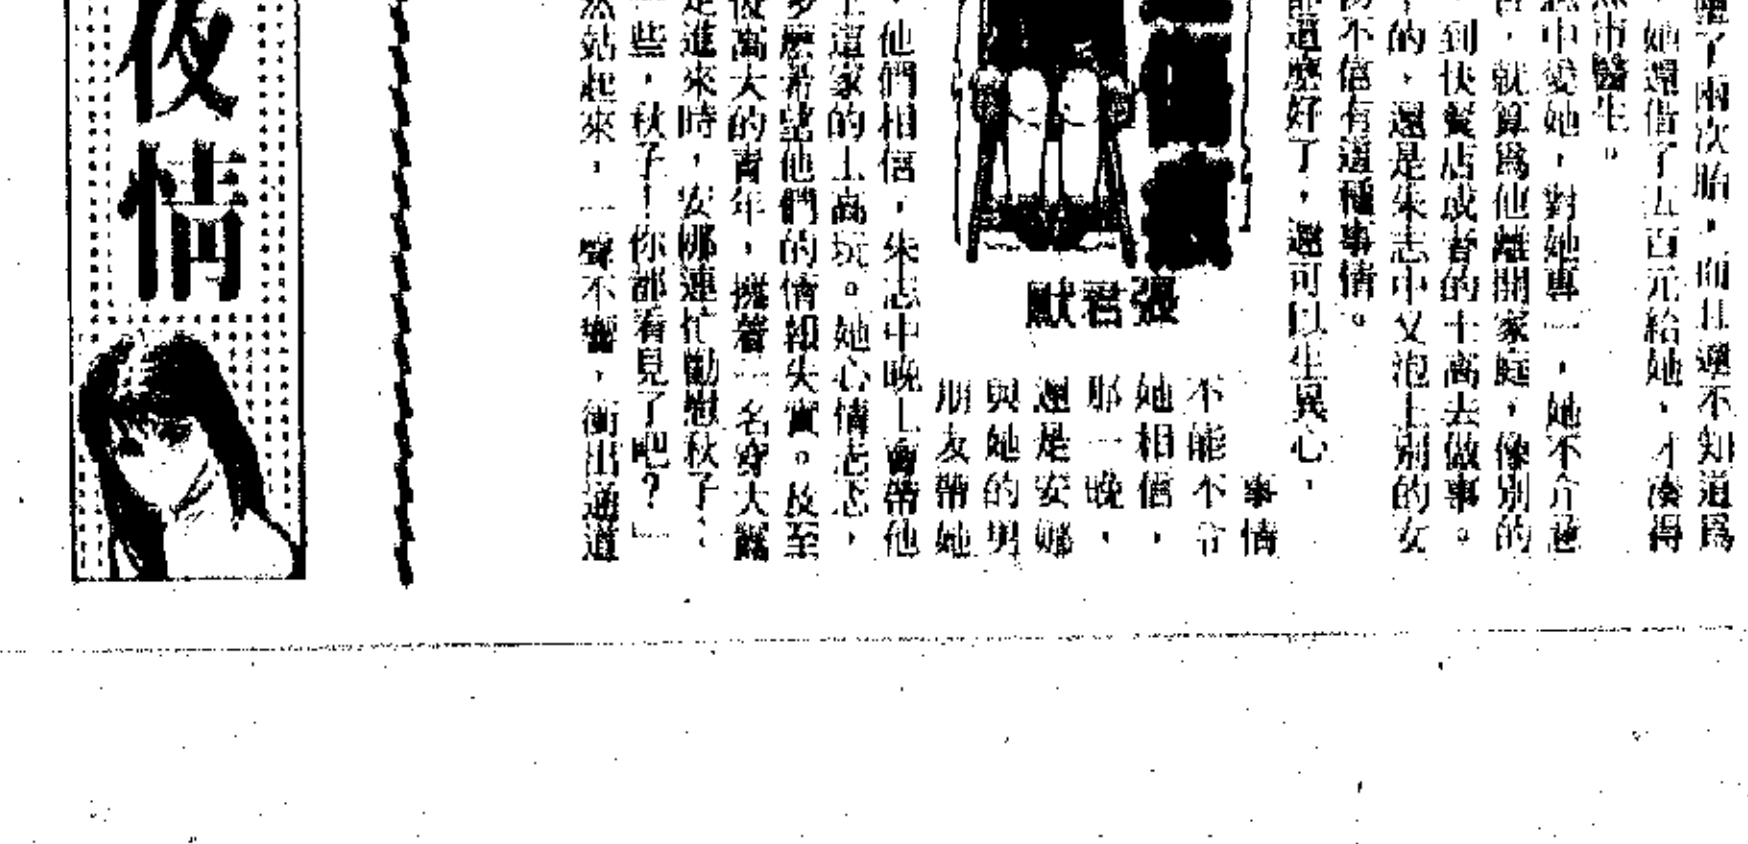 了兩次胎，而且還不知道爲
，她還借了五百元給她，才凑得
市醫生。」
中愛她，對她專一，她不介意
，就算爲他離開家庭，像別的
，到快餐店或者的士高去做事。
的，還是朱志中又泡上別的女
不信有這種事情。
都這麽好了，還可以生異心，
張君默
事情
不能不令
她相信，
那一晚，
還是安娜
與她的男
朋友帶她
，他們相信，朱志中晚上會帶他
上這家的士高玩。她心情忐忑，
多麽希望他們的情報失實。及至
高大的青年，擁着一名穿大
走進來時，安娜連忙勸慰秋子、
一些，秋子！你都看見了吧？」
然站起來，一聲不響，衝出通道
夜情